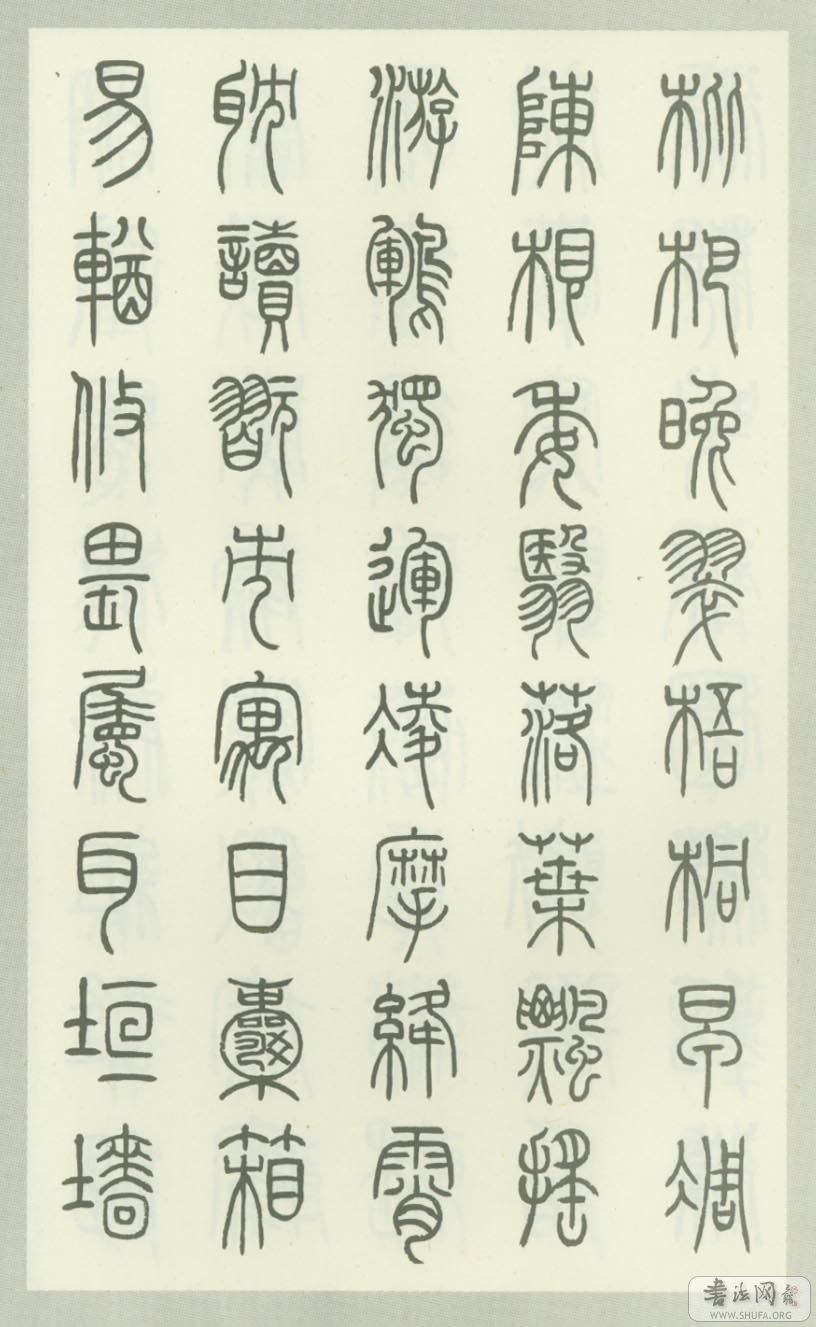 枇杷晚翠梧桐早凋
陳根委翳落葉飄搖
游鶤獨運凌摩絳霄
耽讀翫市寓目囊箱
易輶攸畏屬耳垣牆
書法网
WWW.SHUFA.ORG